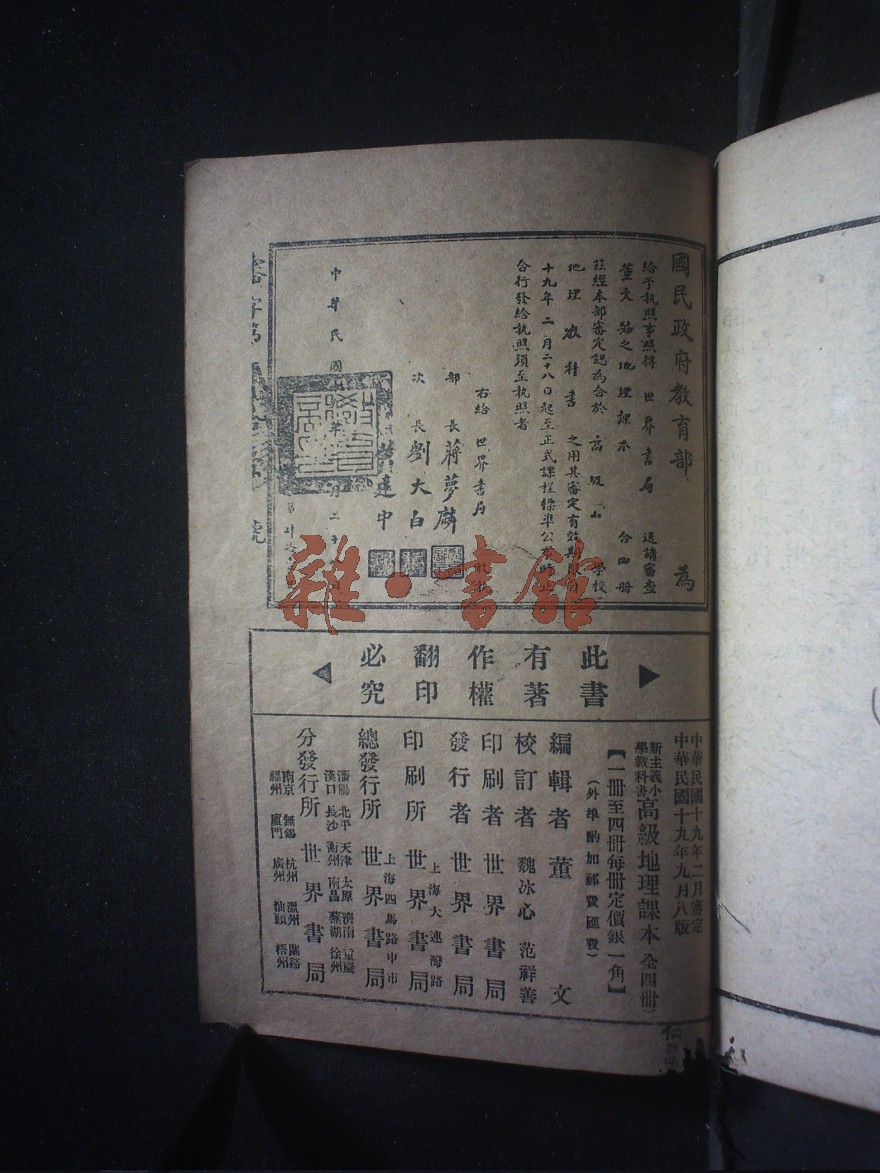 國民政府教育部 為
給予執照事照得 世界書局 送請審查
董文編之地理課本 合四冊
茲經本部審定認為合於 高級小學校
地理教科書 之用其審定有效期間自
十九年二月二十八日起至正式課程標準公布時止
合行發給執照須至執照者
右給 世界書局 收執
部長 蔣夢麟
次長 劉大白
中華民國
雜·書館
此書有著作權翻印必究
中華民國十九年二月審定
中華民國十九年九月八版
新主義小學教科書 高級地理課本 全四冊
【一冊至四冊每冊定價銀一角】
(外埠酌加郵費匯費)
編輯者 董文
校訂者 魏冰心 范祥善
印刷者 世界書局
發行者 世界書局
印刷所 上海大連灣路 世界書局
總發行所 上海四馬路中市 世界書局
分發行所 世界書局
瀋陽 北平 天津 太原 濟南 重慶
漢口 長沙 衡州 南昌 蕪湖 徐州
南京 無錫 杭州 溫州 蘭谿
福州 廈門 廣州 汕頭 梧州